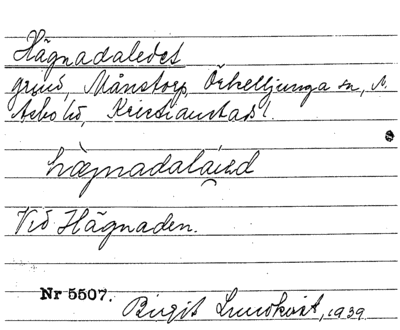 Hägnadaledet
grind, Månstorp, Örkelljunga sn, N.
Åsbo hd, Kristianstads l.
hägnadaláed
Vid Hägnaden.
Nr 5507.
Birgit Lundkvist, 1939